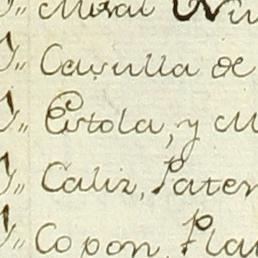 I,, Misal Nu
I,, Casulla de
I,, Estola, y M
I,, Caliz, Paten
I,, Copon, Pla